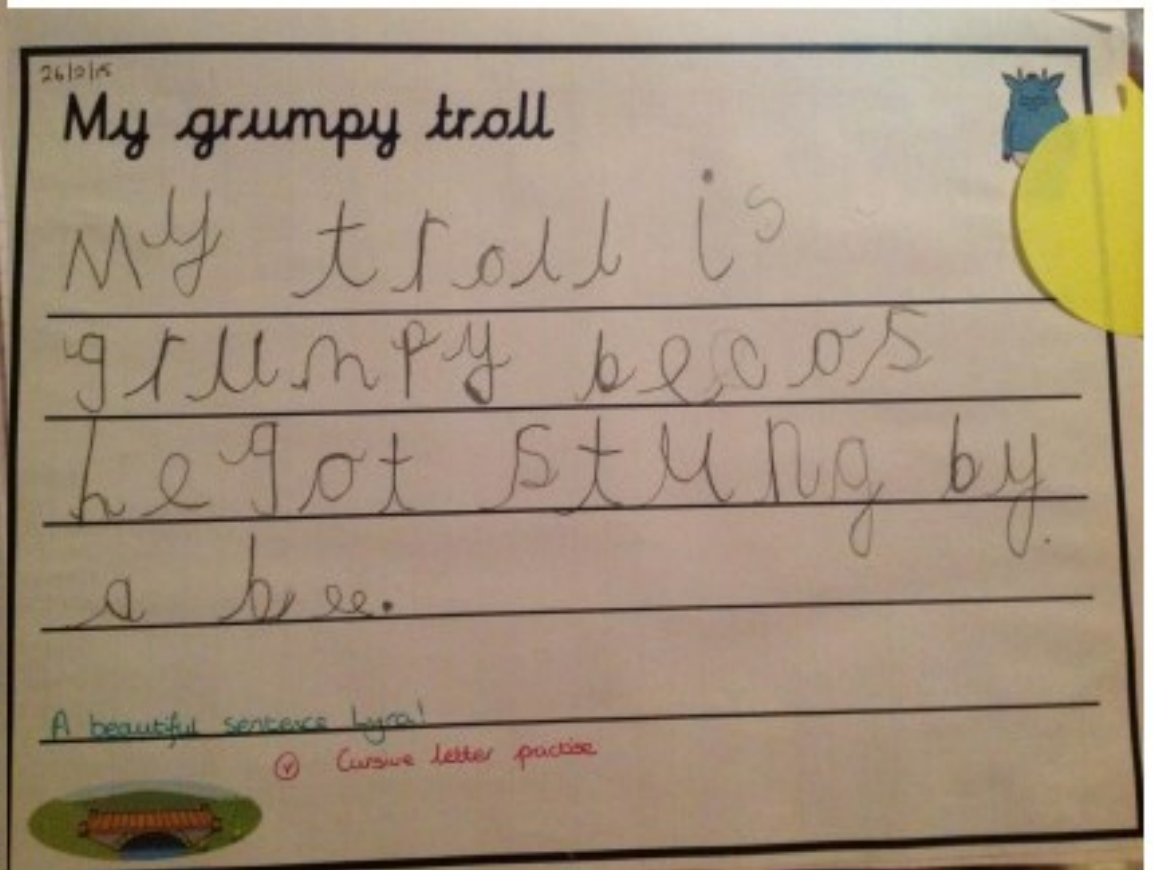 26/2/15
My grumpy troll
My troll is
grumpy becos
he got stung by.
a bee.
A beautiful sentence
Cursive letter practise